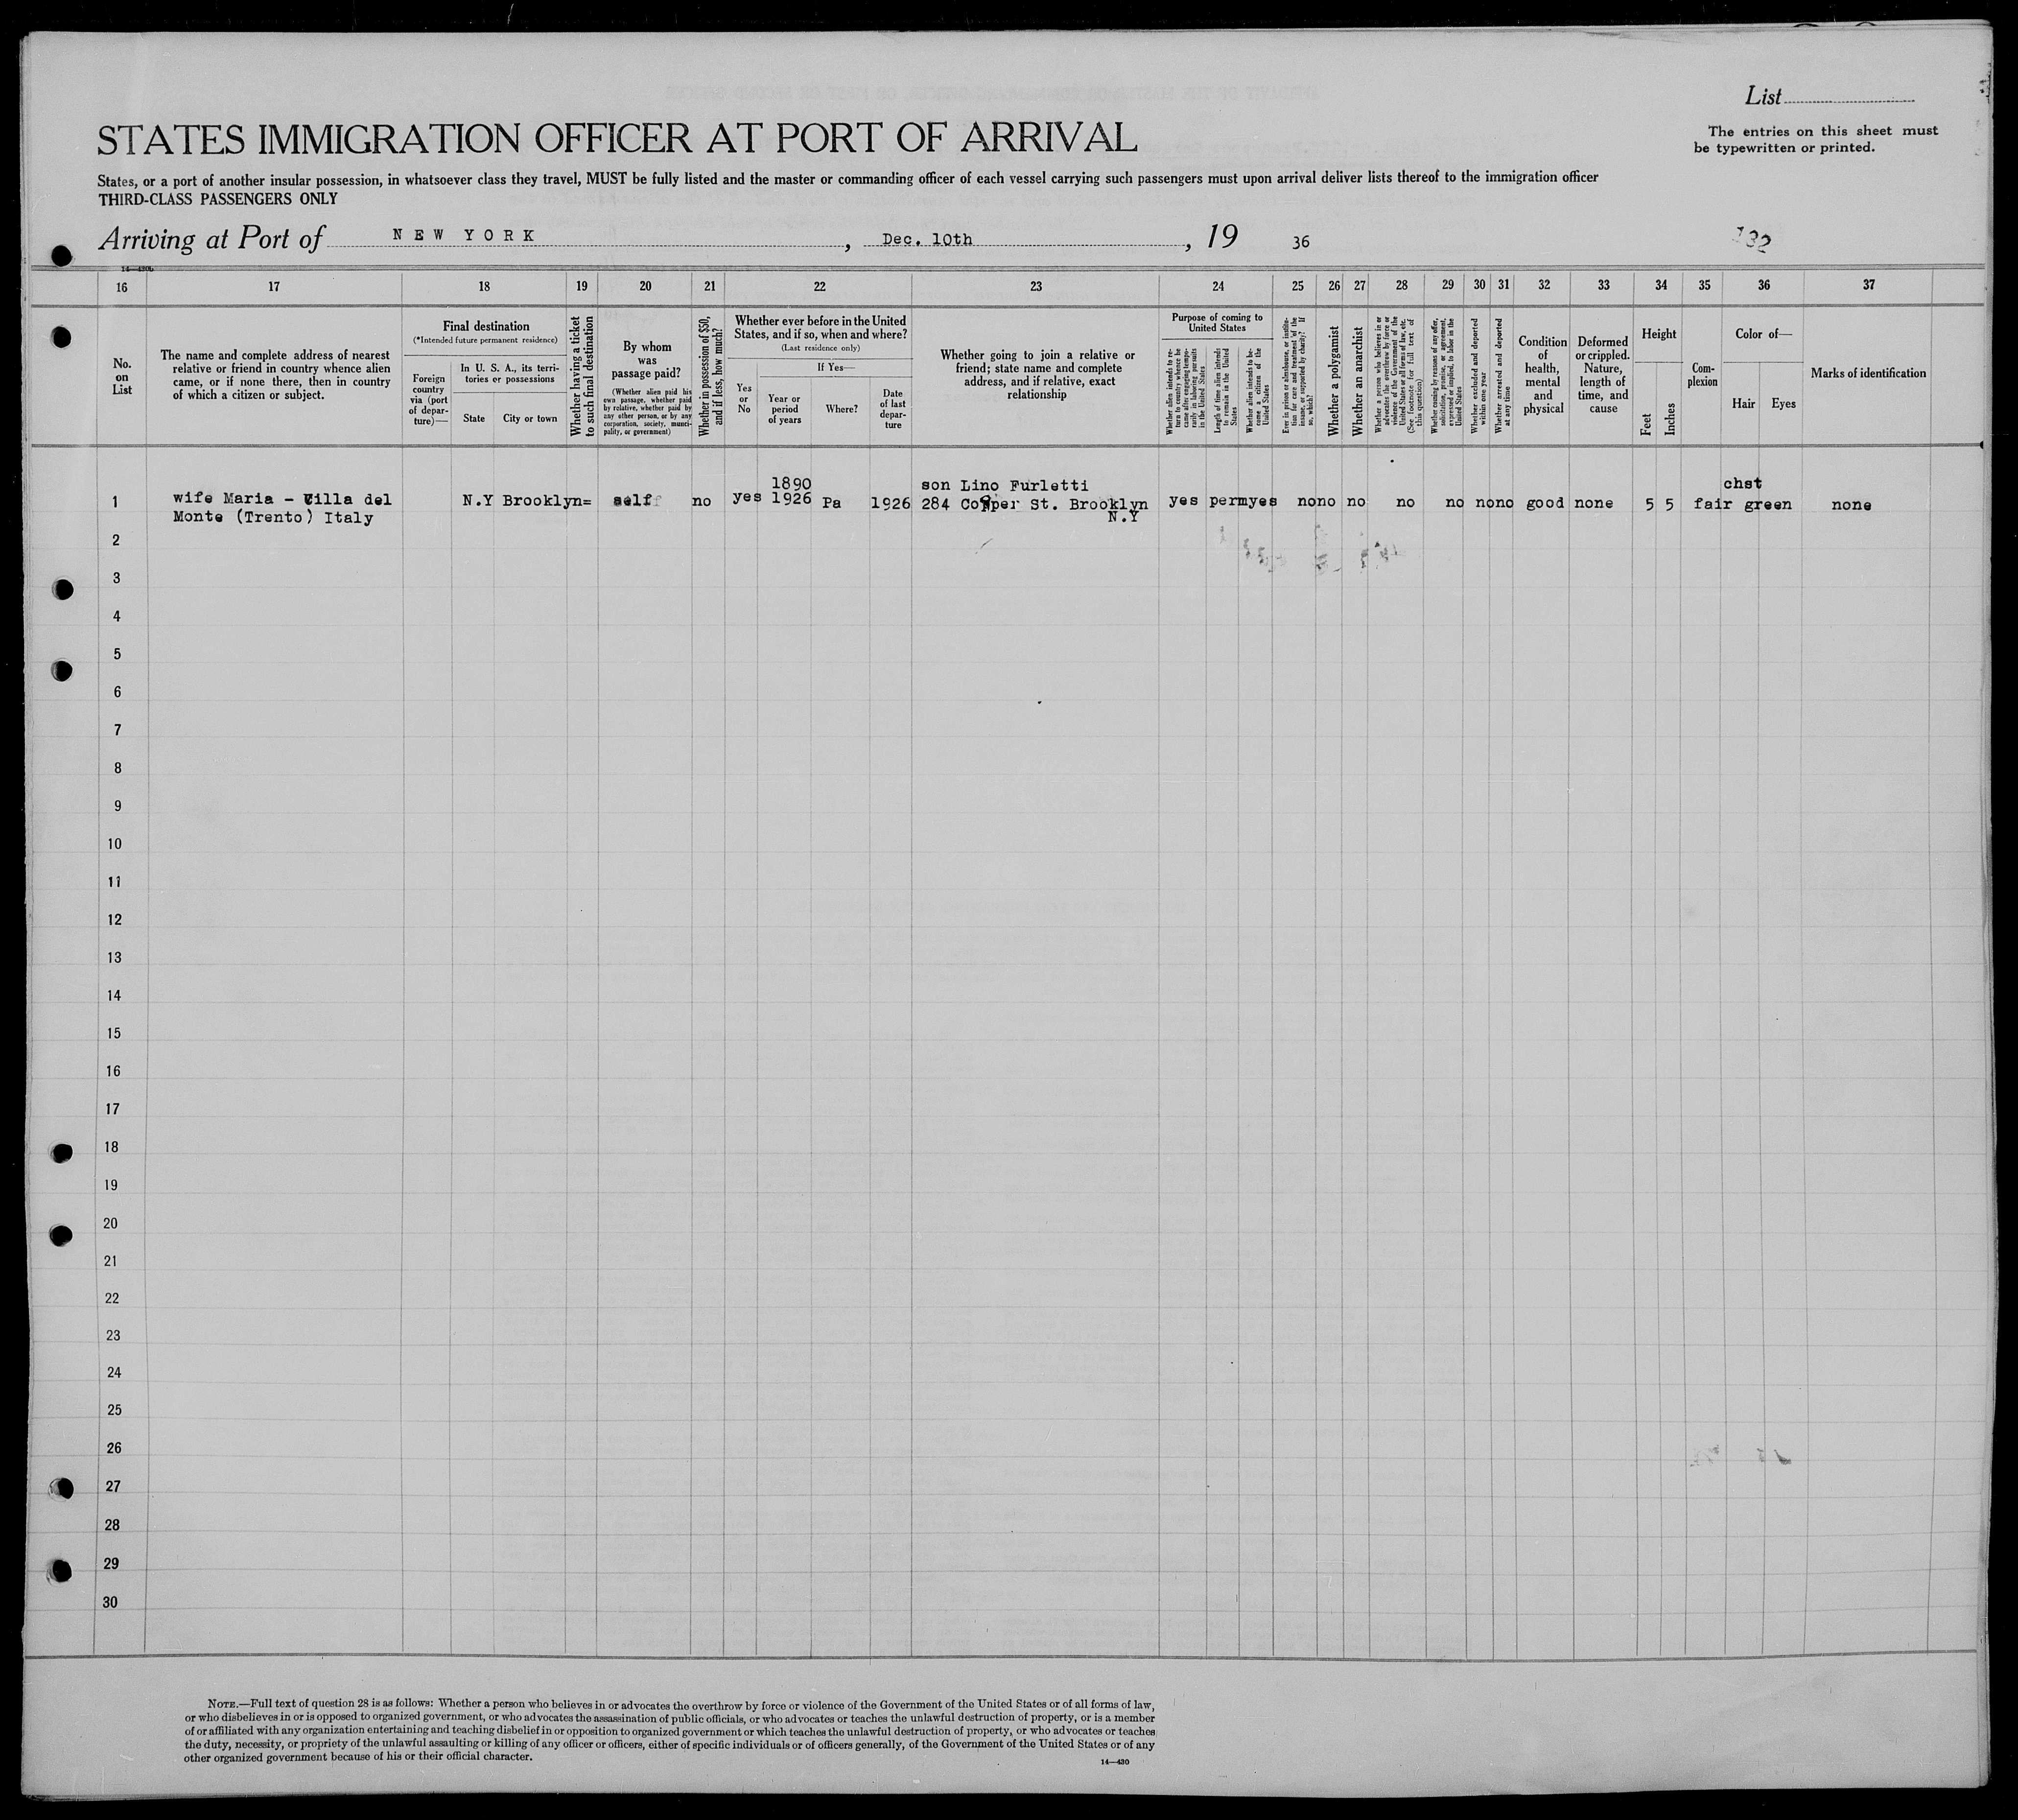 List
The entries on this sheet must
be typewritten or printed.
STATES IMMIGRATION OFFICER AT PORT OF ARRIVAL
States, or a port of another insular possession, in whatsoever class they travel, MUST be fully listed and the master or commanding officer of each vessel carrying such passengers must upon arrival deliver lists thereof to the immigration officer
THIRD-CLASS PASSENGERS ONLY
Arriving at Port of NEW YORK, Dec. 10th, 19 36
132
14—430b
16 17 18 19 20 21 22 23 24 25 26 27 28 29 30 31 32 33 34 35 36 37
No.
on
List
The name and complete address of nearest
relative or friend in country whence alien
came, or if none there, then in country
of which a citizen or subject.
Final destination
(*Intended future permanent residence)
Foreign
country
via (port
of depar-
ture)—
In U. S. A., its terri-
tories or possessions
State City or town
Whether having a ticket
to such final destination
By whom
was
passage paid?
(Whether alien paid his
own passage, whether paid
by relative, whether paid by
any other person, or by any
corporation, society, munci-
pality, or government)
Whether in possession of $50,
and if less, how much?
Whether ever before in the United
States, and if so, when and where?
(Last residence only)
Yes
or
No
If Yes—
Year or
period
of years
Where?
Date
of last
depar-
ture
Whether going to join a relative or
friend; state name and complete
address, and if relative, exact
relationship
Purpose of coming to
United States
Whether alien intends to re-
turn to country whence he
came after engaging tempo-
rarily in laboring pursuits
in the United States
Length of time alien intends
to remain in the United
States
Whether alien intends to be-
come a citizen of the
United States
Ever in prison or almshouse, or institu-
tion for care and treatment of the
insane, or supported by charity? If
so, which?
Whether a polygamist
Whether an anarchist
Whether a person who believes in or
advocates the overthrow by force or
violence of the Government of the
United States or all forms of law, etc.
(See footnote for full text of
this question)
Whether coming by reasons of any offer,
solicitation, promise, or agreement,
expressed or implied, to labor in the
United States
Whether excluded and deported
within one year
Whether arrested and deported
at any time
Condition
of
health,
mental
and
physical
Deformed
or crippled.
Nature,
length of
time, and
cause
Height
Feet
Inches
Com-
plexion
Color of—
Hair Eyes
Marks of identification
1890 son Lino Furletti chst
1 wife Maria - Villa del N.Y Brooklyn= self no yes 1926 Pa 1926 284 Copper St. Brooklyn yes perm yes no no no no no no no good none 5 5 fair green none
Monte (Trento) Italy N.Y
2
3
4
5
6
7
8
9
10
11
12
13
14
15
16
17
18
19
20
21
22
23
24
25
26
27
28
29
30
NOTE.—Full text of question 28 is as follows: Whether a person who believes in or advocates the overthrow by force or violence of the Government of the United States or of all forms of law,
or who disbelieves in or is opposed to organized government, or who advocates the assassination of public officials, or who advocates or teaches the unlawful destruction of property, or is a member
of or affiliated with any organization entertaining and teaching disbelief in or opposition to organized government or which teaches the unlawful destruction of property, or who advocates or teaches
the duty, necessity, or propriety of the unlawful assaulting or killing of any officer or officers, either of specific individuals or of officers generally, of the Government of the United States or of any
other organized government because of his or their official character.
14—430